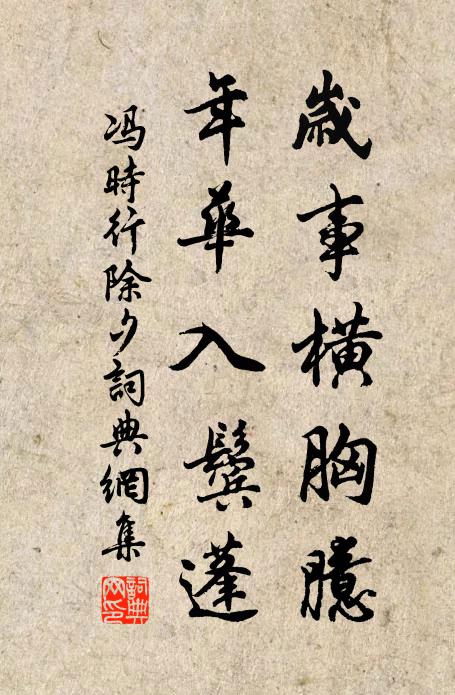 歲事橫胸臆
年華入鬢蓬
冯時行除夕詞典網集
詞典網印